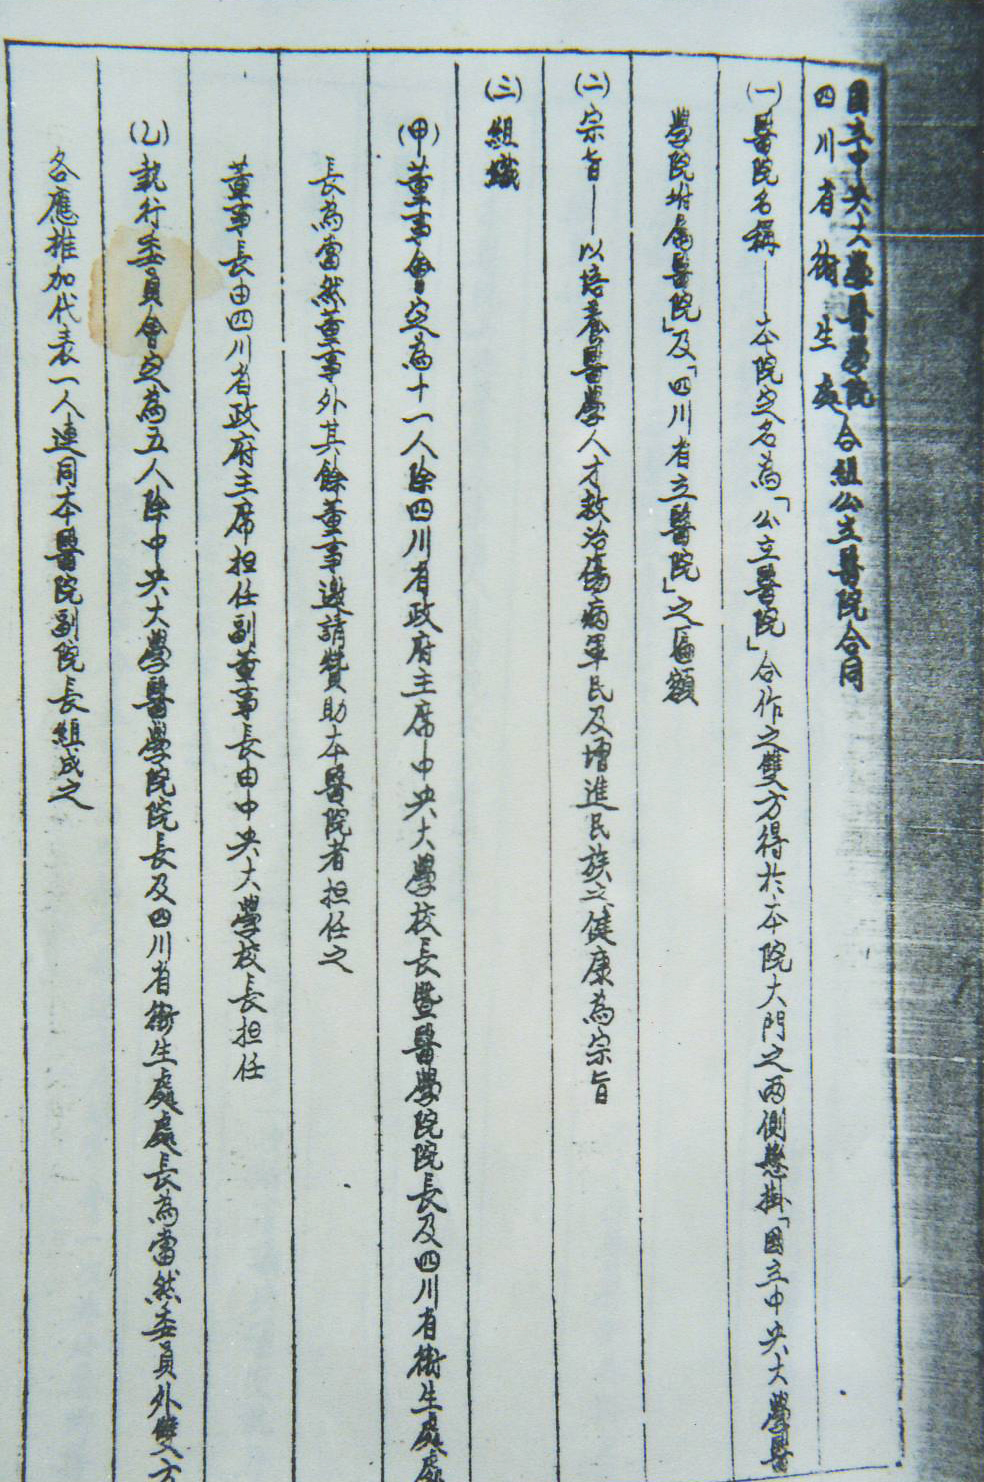 國立中央大學醫學院
四川省衛生處
合組公立醫院合同
(一)醫院名稱——本院定名為「公立醫院」合作之雙方得於本院大門之兩側懸掛「國立中央大學醫
學院坿屬醫院」及「四川省立醫院」之匾額
(二)宗旨——以培養醫學人才救治傷病軍民及增進民族之健康為宗旨
(三)組織
(甲)董事會定為十一人除四川省政府主席中央大學校長暨醫學院院長及四川省衛生處處
長為當然董事外其餘董事邀請贊助本醫院者担任之
董事長由四川省政府主席担任副董事長由中央大學校長担任
(乙)執行委員會定為五人除中央大學醫學院院長及四川省衛生處處長為當然委員外雙方
各應推加代表一人連同本醫院副院長組成之